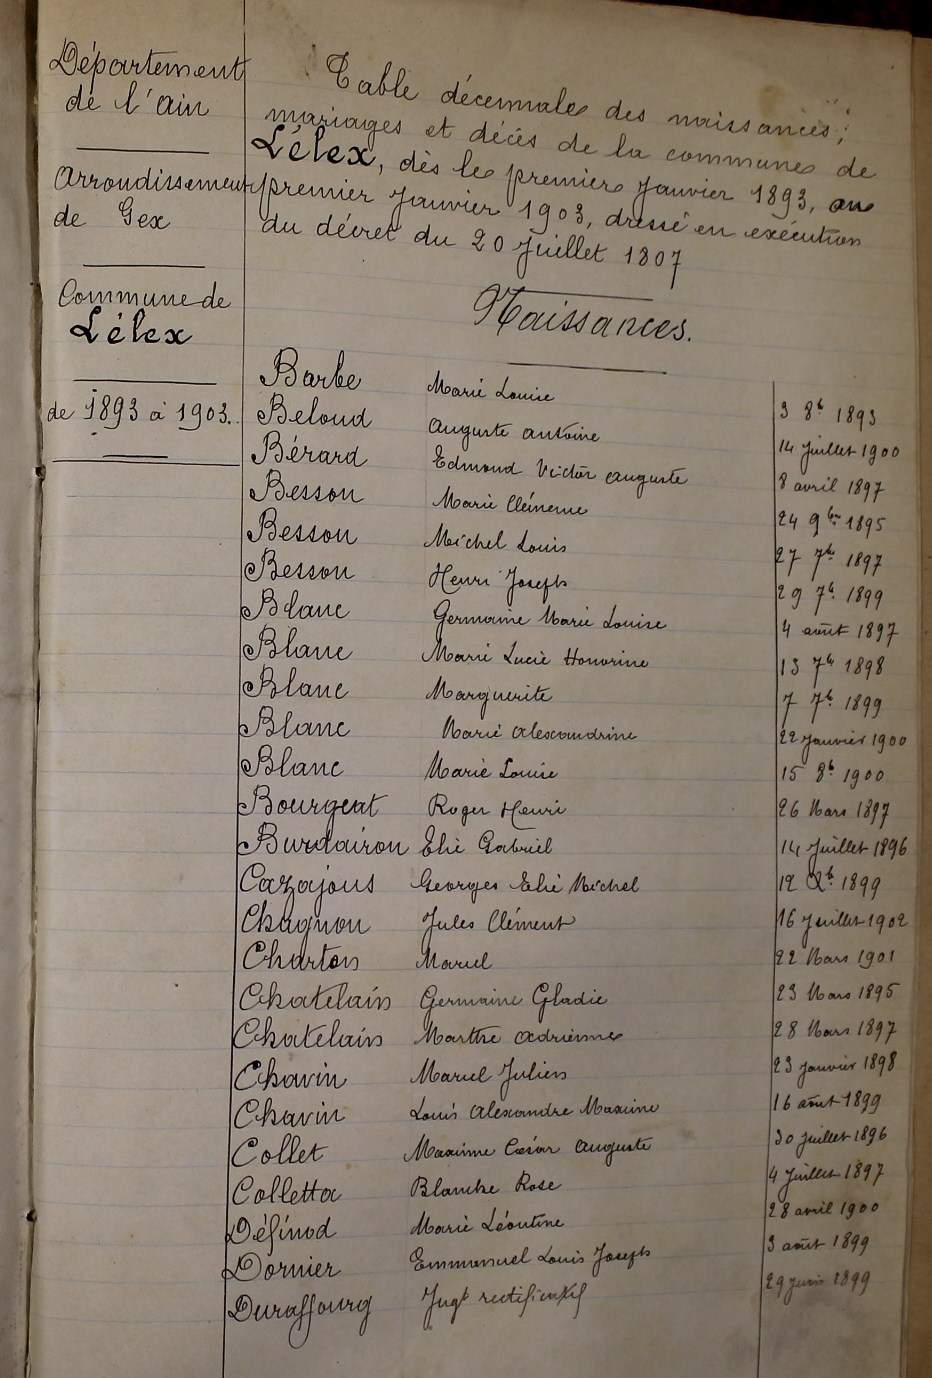 Département
de l'ain
Arrondissement
de Gex
Commune de
Lélex
de 1893 à 1903.
Table décennale des naissances,
mariages et décès de la commune de
Lélex, dès le premier Janvier 1893, au
premier Janvier 1903, dressé en exécution
du décret du 20 Juillet 1807
Naissances.
Barbe Marie Louise 3 8b 1893
Beloud auguste antoine 14 Juillet 1900
Bérard Edmond Victor auguste 8 avril 1897
Besson Marie Clémence 24 9bre 1895
Besson Michel Louis 27 7b 1897
Besson Henri Joseph 29 7b 1899
Blanc Germaine Marie Louise 4 août 1897
Blanc Marie Lucie Honorine 13 7b 1898
Blanc Marguerite 7 7b 1899
Blanc Marie alexandrine 22 Janvier 1900
Blanc Marie Louise 15 8b 1900
Bourgeat Roger Henri 26 Mars 1897
Burdairon Elie Gabriel 14 Juillet 1896
Cazajous Georges Elie Michel 12 Xb 1899
Chagnon Jules Clément 16 Juillet 1902
Charton Marcel 22 Mars 1901
Chatelain Germaine Gladie 23 Mars 1895
Chatelain Marthe adrienne 28 Mars 1897
Chavin Marcel Julien 23 Janvier 1898
Chavin Louis alexandre Maxime 16 août 1899
Collet Maxime César auguste 30 Juillet 1896
Colletta Blanche Rose 4 Juillet 1897
Définod Marie Léontine 28 avril 1900
Dornier Emmanuel Louis Joseph 3 août 1899
Duraffourg Jugt rectificatif 29 Juin 1899